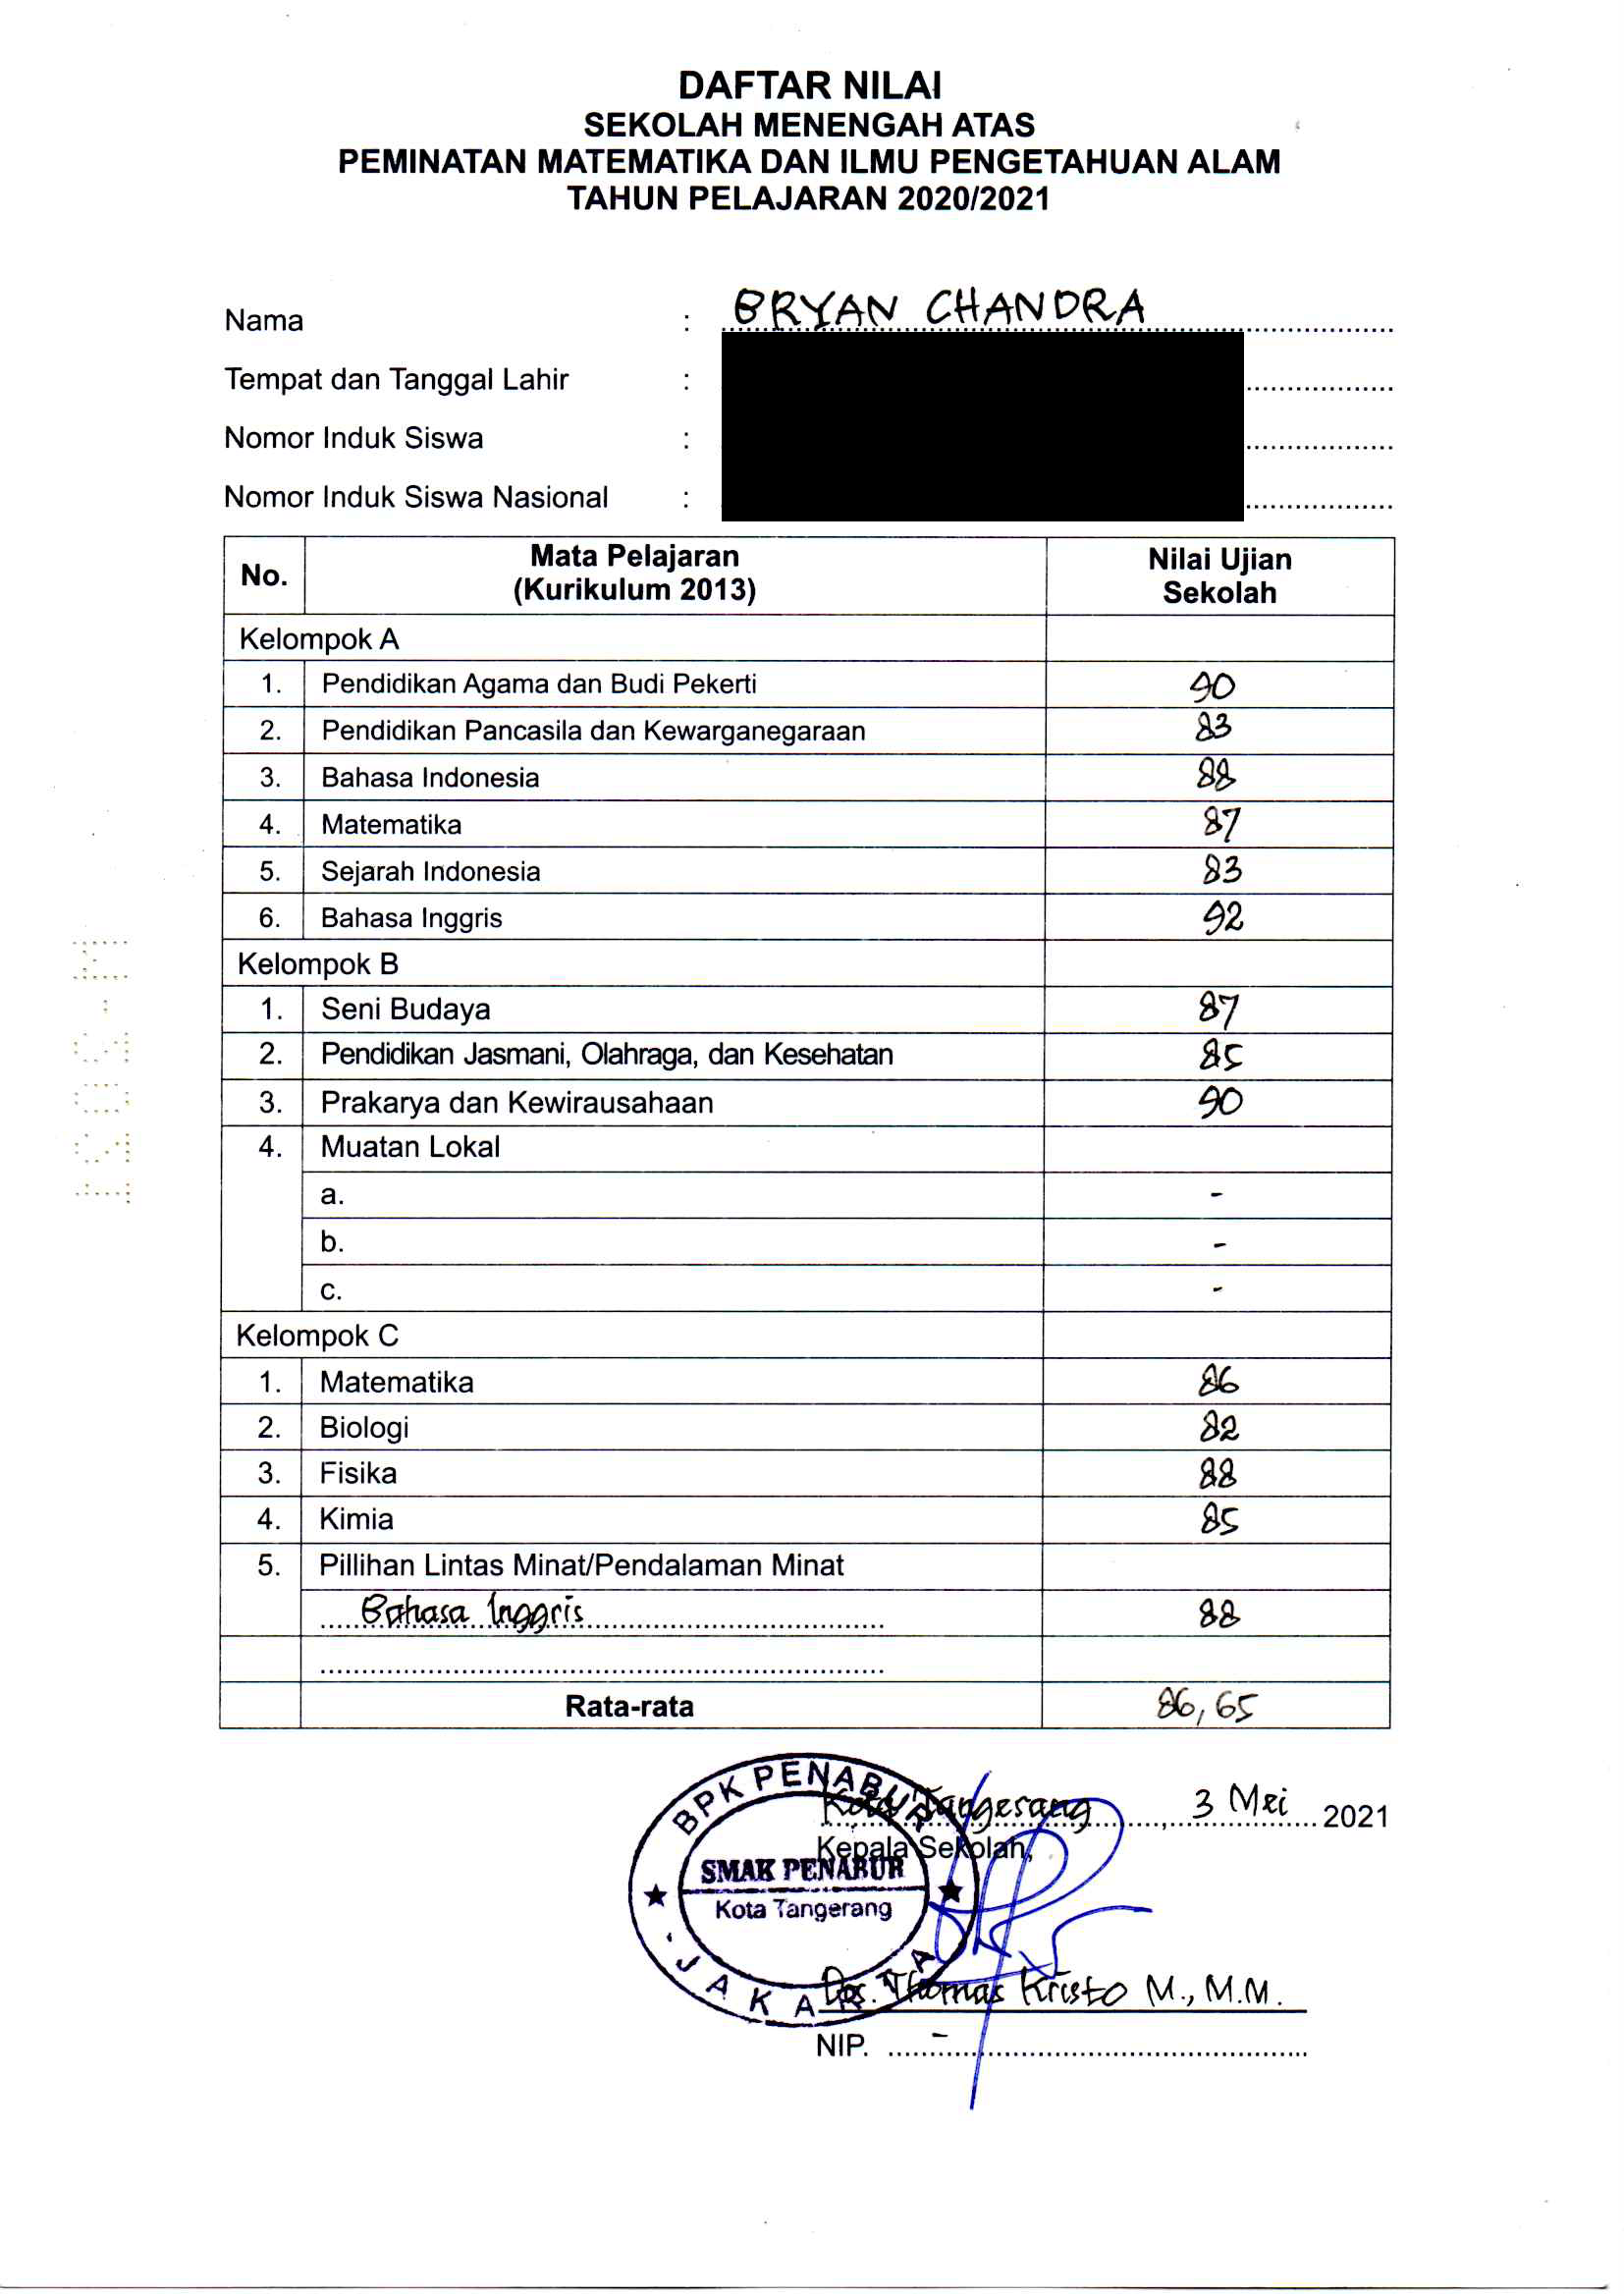 DAFTAR NILAI
SEKOLAH MENENGAH ATAS
PEMINATAN MATEMATIKA DAN ILMU PENGETAHUAN ALAM
TAHUN PELAJARAN 2020/2021
Nama : BRYAN CHANDRA
Tempat dan Tanggal Lahir :
Nomor Induk Siswa :
Nomor Induk Siswa Nasional :
No. Mata Pelajaran (Kurikulum 2013) Nilai Ujian Sekolah
Kelompok A
1. Pendidikan Agama dan Budi Pekerti 90
2. Pendidikan Pancasila dan Kewarganegaraan 83
3. Bahasa Indonesia 88
4. Matematika 87
5. Sejarah Indonesia 83
6. Bahasa Inggris 92
Kelompok B
1. Seni Budaya 87
2. Pendidikan Jasmani, Olahraga, dan Kesehatan 85
3. Prakarya dan Kewirausahaan 90
4. Muatan Lokal
a. -
b. -
c. -
Kelompok C
1. Matematika 86
2. Biologi 82
3. Fisika 88
4. Kimia 85
5. Pillihan Lintas Minat/Pendalaman Minat
Bahasa Inggris 88
Rata-rata 86,65
Kota Tangerang, 3 Mei 2021
Kepala Sekolah,
BPK PENABUR
SMAK PENABUR
Kota Tangerang
- JAKARTA
Drs. Thomas Kristo M., M.M.
NIP. -